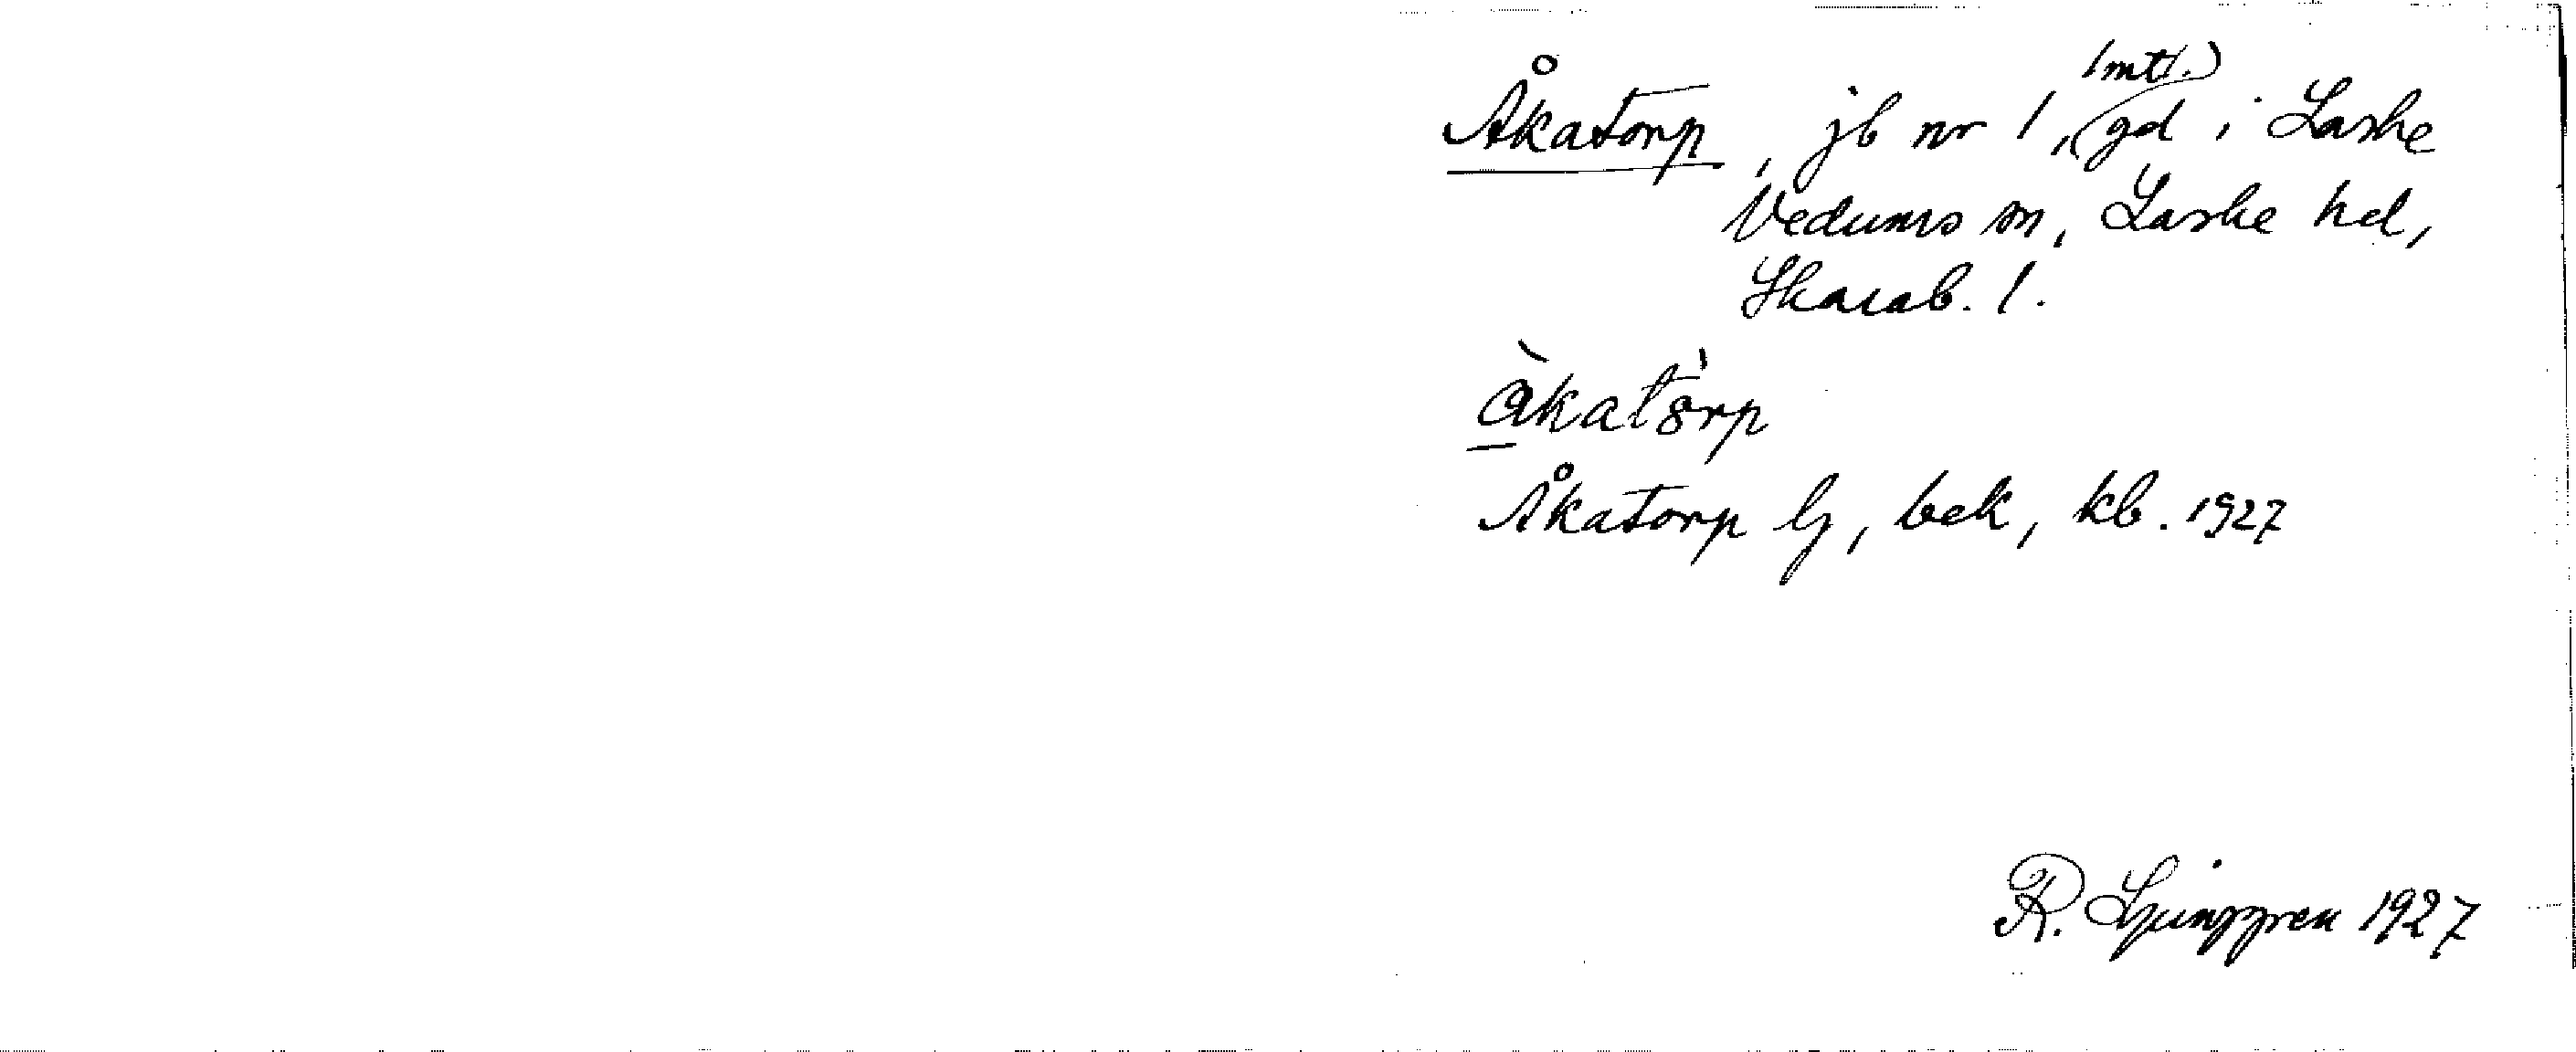 Åkatorp, jb nr 1, (1 mtl.) gd i Laske
Vedums sn, Laske hd,
Skarab. l.
åkatorp
Åkatorp lj, bek, kb. 1927
R. Ljunggren 1927